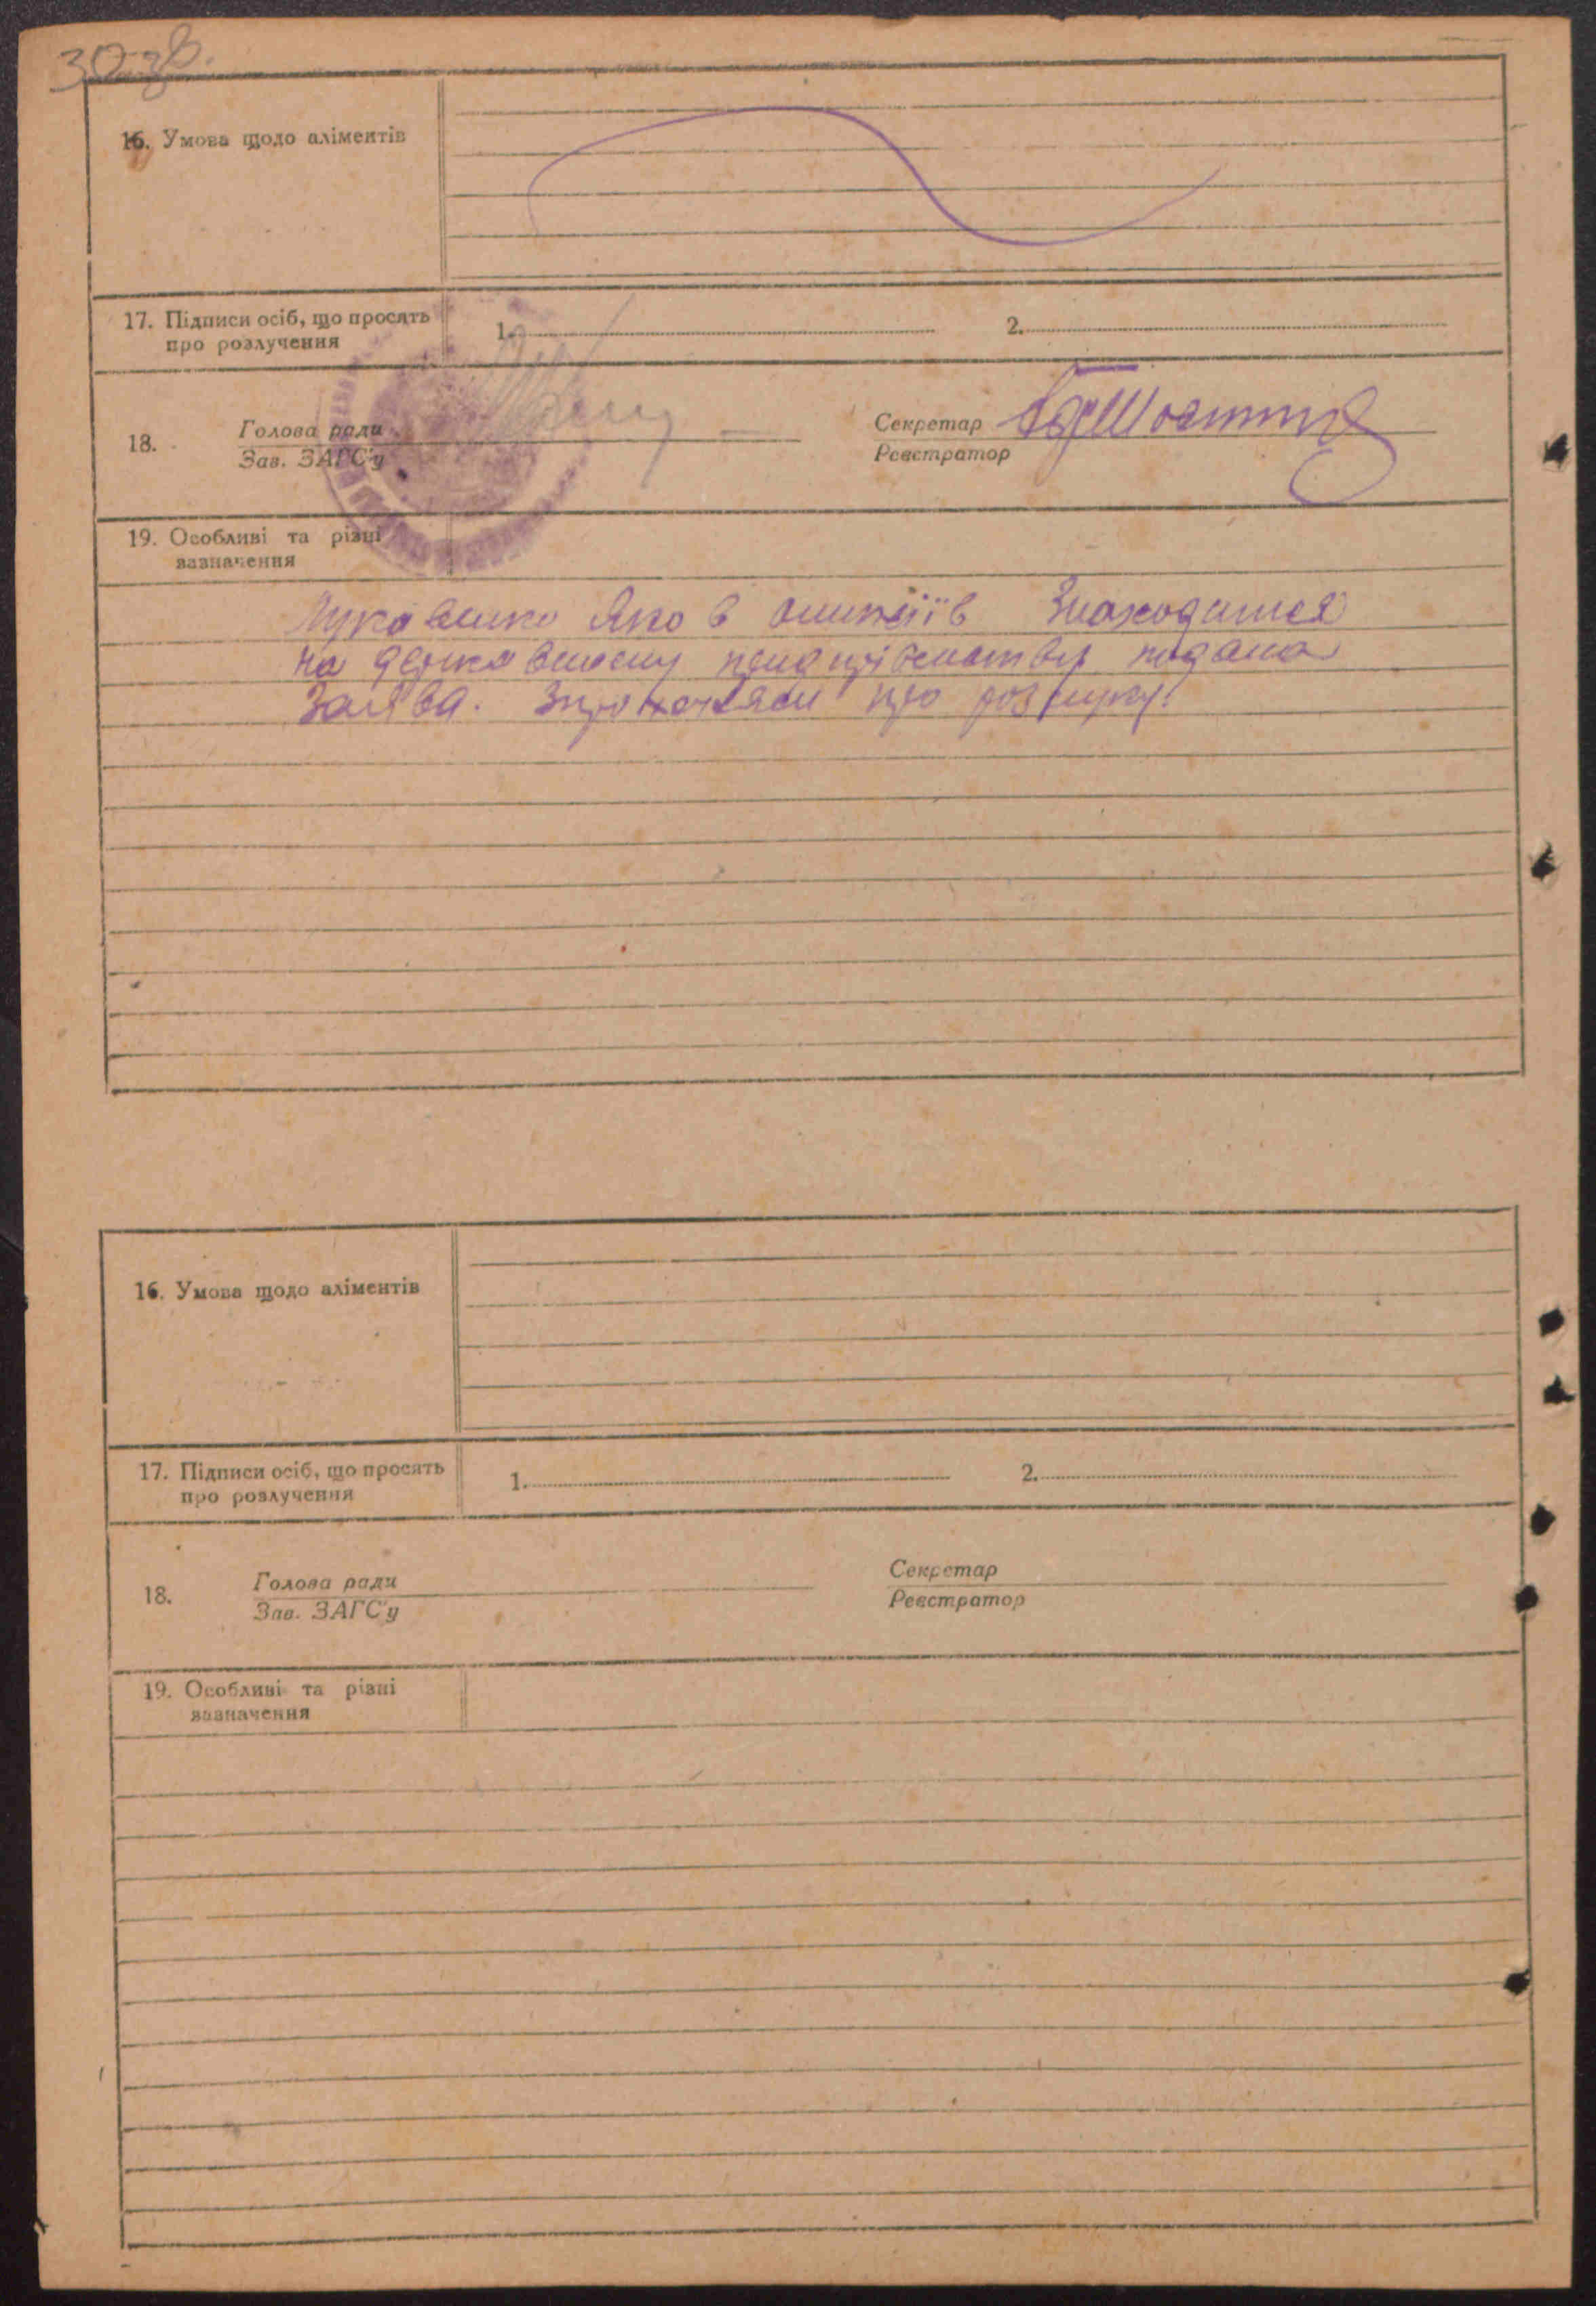 30 зв.
16. Умова щодо аліментів
17. Підписи осіб, що просять
про розлучення
1. 2.
18. Голова ради Секретар
Зав. ЗАГС'у Реєстратор
19. Особливі та різні
зазначення
Яков Знаходится
на подана
Заява. про розшук.
16. Умова щодо аліментів
17. Підписи осіб, що просять
про розлучення
1. 2.
18. Голова ради Секретар
Зав. ЗАГС'у Реєстратор
19. Особливі та різні
зазначення